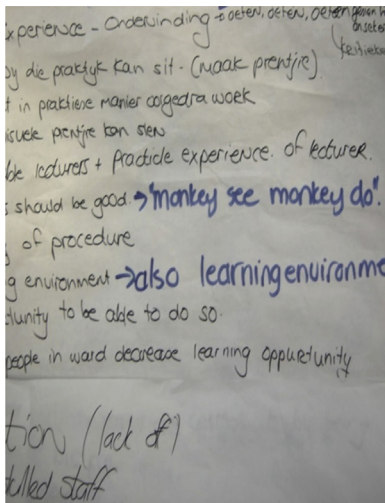 xperience - Ondervinding → oefen, oefen, oefen
by die praktyk kan sit - (maak prentjie)
t in praktiese manier oorgedra work
isuele prentjie kan sien
ble lecturers + practicle experience. of lecturer.
s should be good. → "monkey see monkey do".
of procedure
g environment → also learning environme
tunity to be able to do so.
people in ward decrease learning oppurtunity
tion (lack of)
killed staff